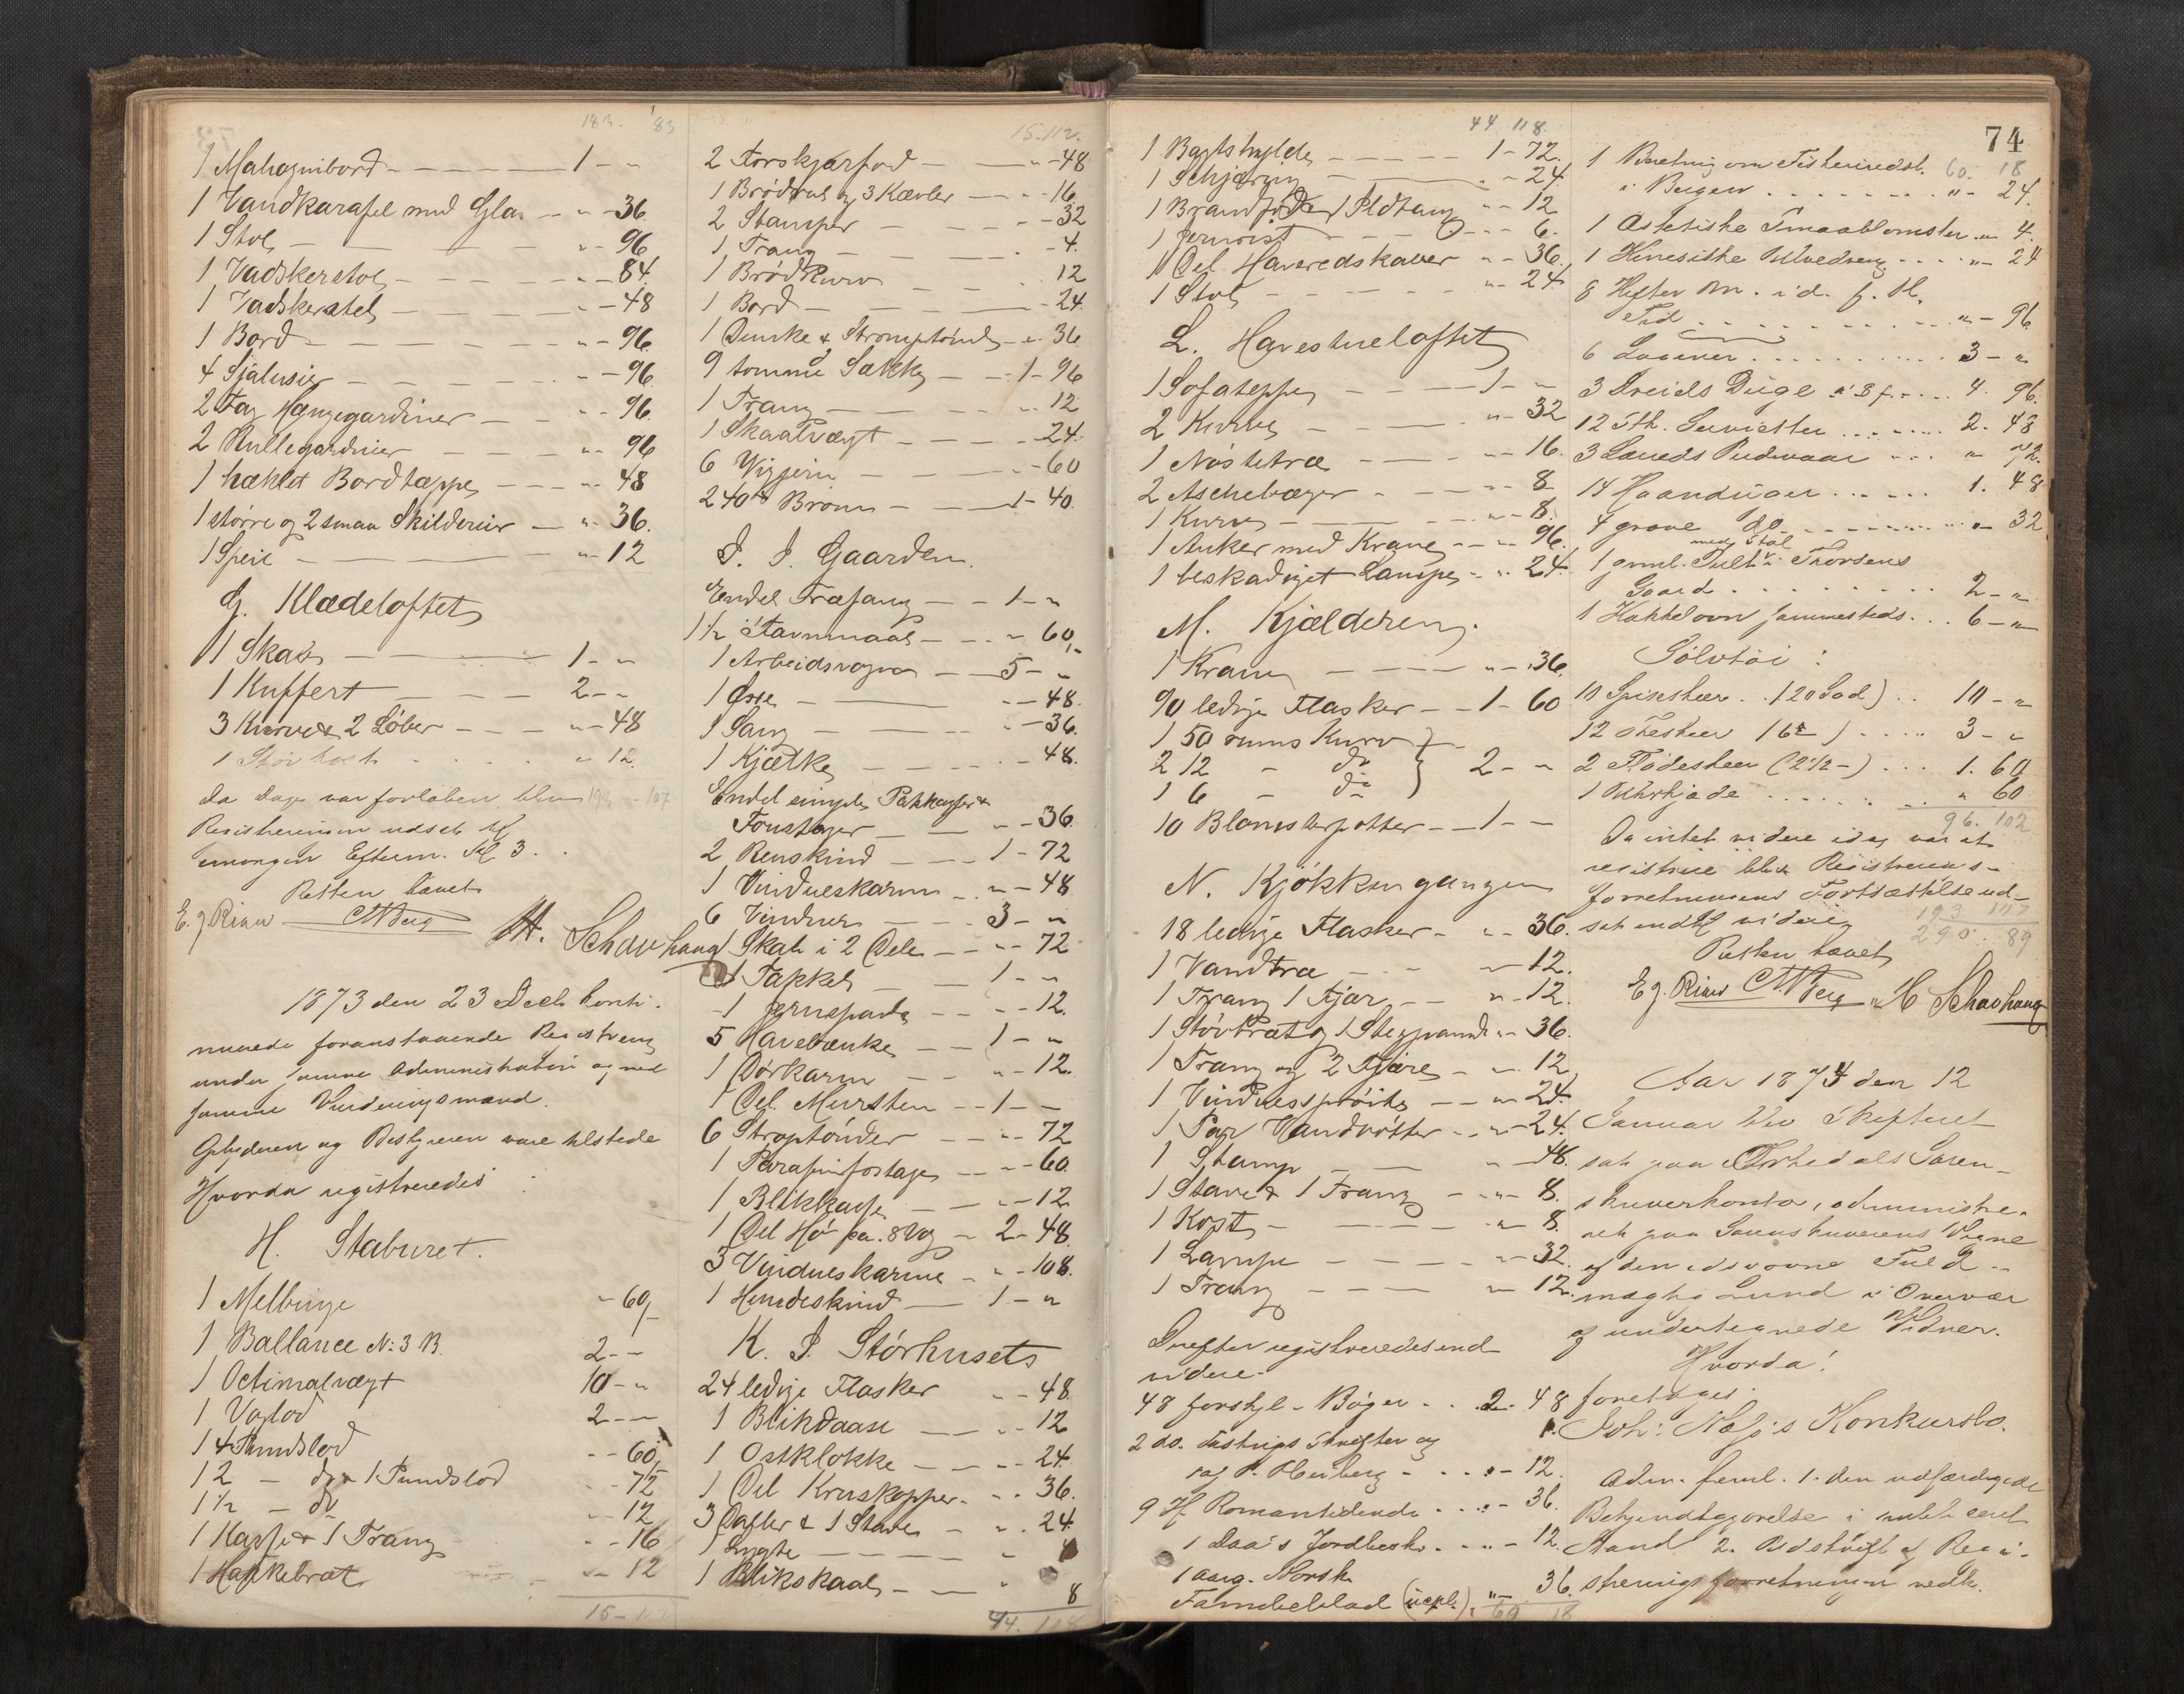 183. 83
1 Mahognibord 1 - "
1 Vandkarafel med Glas " - 36.
1 Stol " - 96
1 Vadskerstol " - 84.
1 Vadskerstel " - 48
1 Bord " - 96
4 Sjalusier " - 96
2 Fag Hængegardiner " - 96.
2 Rullegardiner " - 96
1 hæklet Bordtæppe " - 48
1 større og 2 smaa Skilderier " - 36.
1 Speil " - 12
G. Klædeloftet
1 Skab 1 - "
1 Kuffert 2 - "
3 Kurve & 2 Løber " - 48
1 " 12.
da Dagen var forløben blev 193 - 107
Registreringen udsat til
imorgen Efterm. Kl 3.
Retten hævet
E. J. Rian CMBerg H. Schavhaug
1873 den 23 Decb. konti-
nuerede foranstaaende Registrering
under samme Administration og med
samme Vurderingsmænd.
og Bestyreren vare tilstede
Hvorda registreredes:
H. Staburet.
1 Melbinge " - 60
1 Ballance No: 3 B. 2 - "
1 Decimalvægt 10 - "
1 Voglod 2 - "
1 4 Pundslod " - 60
1 2 - do & 1 Pundslod " - 72
1 1/2 - do " - 12
1 Kasse & 1 Trang " - 16
1 Hakkebræt " - 12
15 - 112
15.112.
2 " - 48
1 og 3 Kævler " - 16
2 Stamper " - 32
1 Trang " - 4.
1 Brødkurv " 12
1 Bord " - 24.
1 Dunke & Strømptønde " 36
9 tomme Sække 1 - 96
1 Trang " 12
1 Skaalvægt " - 24.
6 " - 60
240 1 - 40.
I. I Gaarden.
Endel Træfang 1 - "
1 1/2 Favnmaal " 60
1 Arbeidsvogn 5 - "
1 Øxe " - 48.
1 Sag " - 36.
1 Kjælke " - 48.
Endel simple Pakkasser &
Foustager " - 36
2 Renskind 1 - 72
1 Vindueskarm " - 48
6 Vinduer 3 - "
1 Skab i 2 Dele " - 72
1 Takkel 1 - "
1 Jernspade " - 12.
5 Havebænke 1 - "
1 Dørkarm " - 12.
1 Del Mursten 1 - "
6 Straptønder " - 72
1 Parafinfostage " - 60
1 Blikkasse " - 12
1 Del Hø ca. 8 Vog 2 - 48
3 Vindueskarme " - 108.
1 Hundeskind 1 - "
K. I Størhuset
24 ledige Flasker " - 48.
1 Blikdaase " - 12
1 Ostklokke " - 24.
1 Del Kruskopper " - 36.
3 Daller & 1 Stave " 24
1 Lygte "
1 Blikskaal " 8
44. 118
74
44 118.
1 Bogshylde 1 - 72.
1 " - 24.
1 " - 12
1 Jernrist " - 6.
1 Del Haveredskaber " - 36.
1 Stol " - 24
L. Havestueloftet
1 Sofateppe 1 - "
2 Kurve " - 32
1 Nøstetræ " - 16.
2 Aschebæger " - 8
1 Kurv " - 8.
1 Anker med Krane " - 96.
1 beskadiget Lampe " 24.
M. Kjælderen.
1 Kran " - 36.
90 ledige Flasker 1 - 60
1 50 rums Kurv
2 12 - do 2 - "
1 6 - do
10 Blomsterpotter 1 - "
N. Kjøkkengangen
18 ledige Flasker " 36.
1 Vandtræ " 12.
1 Trang 1 Kjær " - 12.
1 og 1 Stegpande " 36.
1 Trang og 2 Kjære " 12
1 Vinduessprøite " 24.
1 Par Vandbøtter " - 24.
1 Stamp " - 48.
1 Stave & 1 Trang " - 8.
1 Kost " 8.
1 Lampe " - 32.
1 Trang " 12.
Derefter registreredes end
videre.
48 forskjl. Bøger 2. 48
2 do. Skrifter og
P. Heiberg " - 12.
9 H. Romantidende " - 36.
1 Daa's Jordbeskr. " - 12.
1 aarg. Norsk
Familieblad (icpl.) " 36.
69 18
1 Beretning om Fiskeriudst. 60. 18
i Bergen " - 24.
1 Æstetiske Smaablomster " 4.
1 " - 24
8 Hefter
Tid " - 96
6 Lagener 3 - "
3 Dreiels Duge à 3 f. 4. 96.
12 Stk. Servietter 2. 48
3 Lærreds Pudevaar " 72.
14 Haanduger 1. 48
4 grove do " 32
med Stol
1 gml. Pult i Thorsens
Gaard 2 - "
1 Kakkelovn sammesteds 6 - "
Sølvtøi:
10 Spiseskeer (20 Lod) 10 - "
12 Theskeer (6 - ) 3 - "
2 Flødeskeer (2 1/2 - ) 1. 60
1 Uhrkjæde " 60
96. 102
Da intet videre idag var at
registrere blev Registrerings-
forretningens Fortsættelse ud-
sat indtil videre
193 107
290. 89
Retten hævet
E J. Rian CMBerg H Schavhaug
Aar 1874 den 12
Januar blev Skifteret
sat paa Ørkedals Soren-
skriverkontor, administre-
ret paa Sorenskriverens Vegne
af den edsvorne Fuld-
mægtig Lund i Overvær
af undertegnede Vidner.
Hvorda!
foretages:
1. Joh: Næss's Konkursbo.
Adm. feml. 1. den udfærdigede
Bekjendtgjørelse i
Stand 2. Udskrift af Regi-
streringsforretningen vedk.